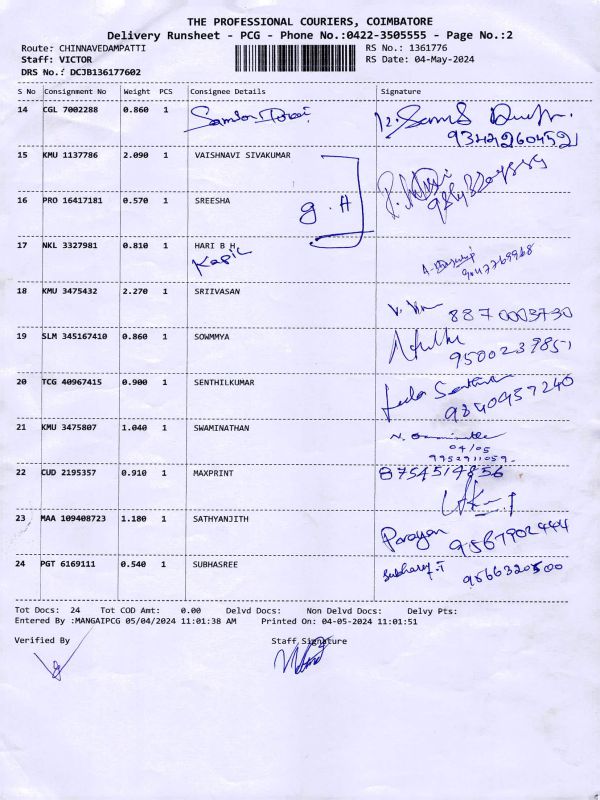 THE PROFESSIONAL COURIERS, COIMBATORE
Delivery Runsheet - PCG - Phone No.:0422-3505555 - Page No.:2
Route: CHINNAVEDAMPATTI RS No.: 1361776
Staff: VICTOR RS Date: 04-May-2024
DRS No.: DCJB136177602
S No Consignment No Weight PCS Consignee Details Signature
14 CGL 7002288 0.860 1
15 KMU 1137786 2.090 1 VAISHNAVI SIVAKUMAR
16 PRO 16417181 0.570 1 SREESHA g. A
17 NKL 3327981 0.810 1 HARI B H
18 KMU 3475432 2.270 1 SRIIVASAN
8870003730
19 SLM 345167410 0.860 1 SOWMMYA
20 TCG 40967415 0.900 1 SENTHILKUMAR
9840457240
21 KMU 3475807 1.040 1 SWAMINATHAN
04/05
9952911059
22 CUD 2195357 0.910 1 MAXPRINT 8754514856
23 MAA 109408723 1.180 1 SATHYANJITH
9567902444
24 PGT 6169111 0.540 1 SUBHASREE
9566320500
Tot Docs: 24 Tot COD Amt: 0.00 Delvd Docs: Non Delvd Docs: Delvy Pts:
Entered By :MANGAIPCG 05/04/2024 11:01:38 AM Printed On: 04-05-2024 11:01:51
Verified By Staff Signature